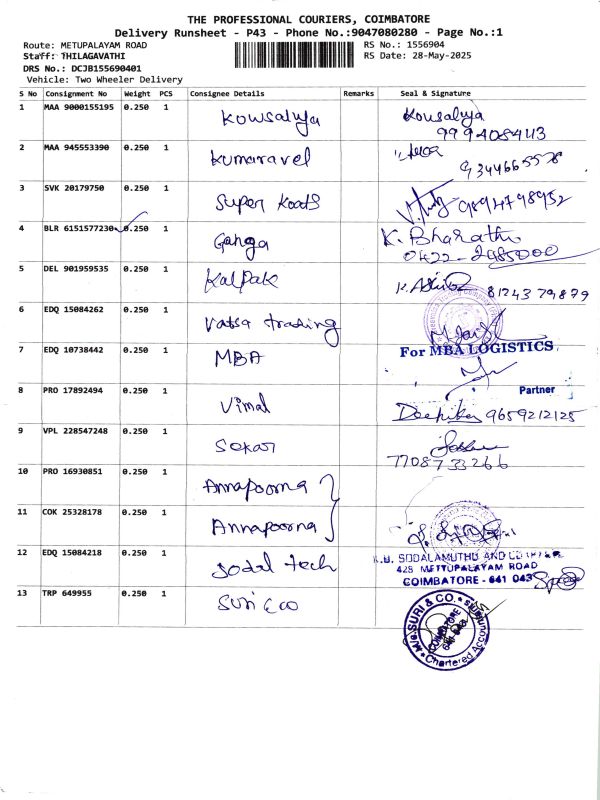 THE PROFESSIONAL COURIERS, COIMBATORE
Delivery Runsheet - P43 - Phone No.:9047080280 - Page No.:1
Route: METUPALAYAM ROAD RS No.: 1556904
Staff: THILAGAVATHI RS Date: 28-May-2025
DRS No.: DCJB155690401
Vehicle: Two Wheeler Delivery
S No Consignment No Weight PCS Consignee Details Remarks Seal & Signature
1 MAA 9000155195 0.250 1 Kowsalya Kowsalya
9994084113
2 MAA 945553390 0.250 1 Kumaravel 9344665578
3 SVK 20179750 0.250 1 Super Koats 9894798952
4 BLR 6151577230 0.250 1 Ganga K. Bharathi
0422-2985000
5 DEL 901959535 0.250 1 Kalpak 81243 79879
6 EDQ 15084262 0.250 1 Vatsa trading
7 EDQ 10738442 0.250 1 MBA For MBA LOGISTICS
Partner
8 PRO 17892494 0.250 1 Vimal Deepika 9659212125
9 VPL 228547248 0.250 1 Sekar
7708733266
10 PRO 16930851 0.250 1 Annapoorna
11 COK 25328178 0.250 1 Annapoorna
12 EDQ 15084218 0.250 1 Sodal tech SODALAMUTHU AND
428 METTUPALAYAM ROAD
COIMBATORE - 641 043
13 TRP 649955 0.250 1 Suri & co
M/s. SURI & CO.
COIMBATORE
641 043
Chartered Accountants